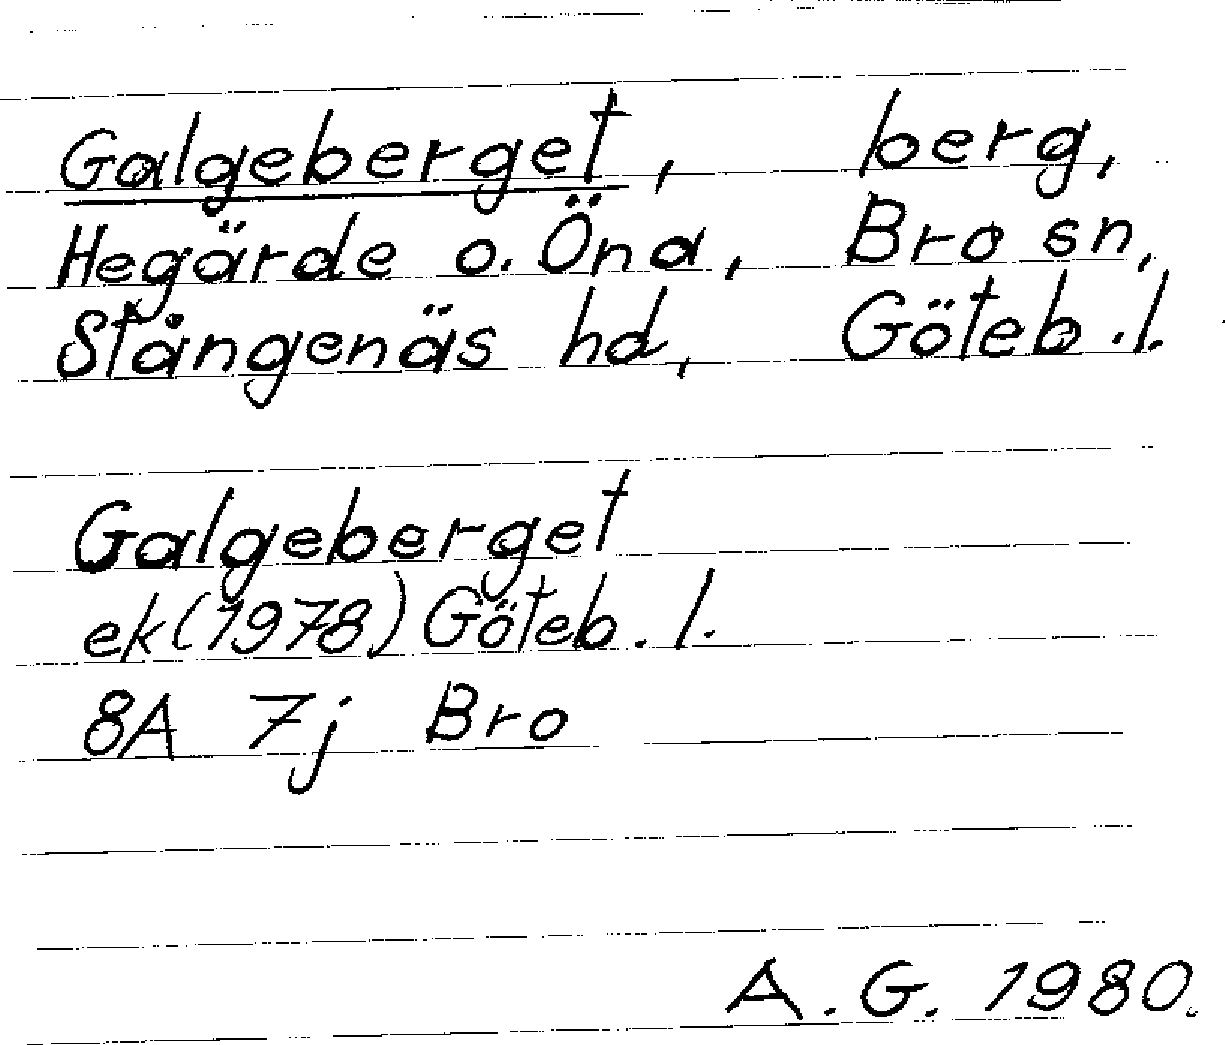 Galgeberget, berg,
Hegärde o. Öna, Bro sn,
Stångenäs hd, Göteb. l.
Galgeberget
ek (1978) Göteb. l.
8A 7j Bro
A. G. 1980.